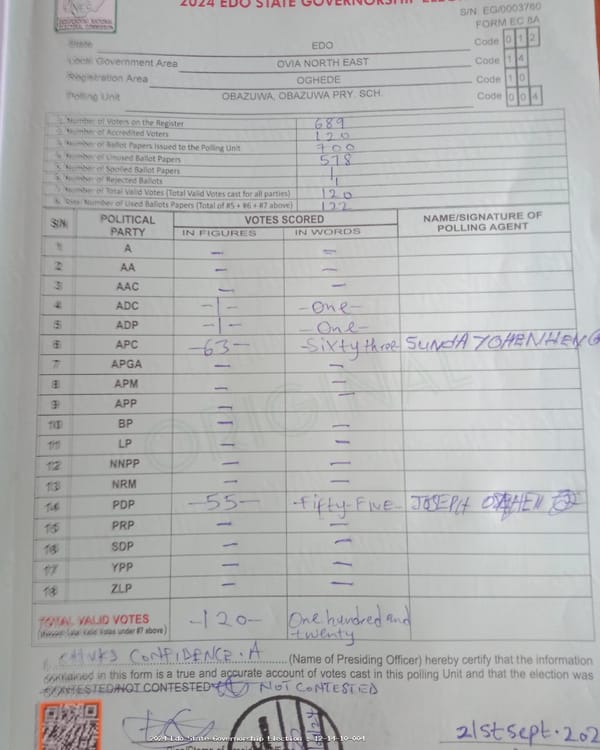 2024 EDO STATE GOVERNORSHIP
S/N EG/0003760
FORM EC 8A
INDEPENDENT NATIONAL
State EDO Code 0 1 2
Local Government Area OVIA NORTH EAST Code 1 4
Registration Area OGHEDE Code 1 0
Polling Unit OBAZUWA, OBAZUWA PRY. SCH. Code 0 0 4
1. Number of Voters on the Register 689
2. Number of Accredited Voters 120
3. Number of Ballot Papers Issued to the Polling Unit 700
4. Number of Unused Ballot Papers 578
5. Number of Spoiled Ballot Papers 1
6. Number of Rejected Ballots 1
7. Number of Total Valid Votes (Total Valid Votes cast for all parties) 120
8. Number of Used Ballots Papers (Total of #5 + #6 + #7 above) 122
S/N POLITICAL PARTY VOTES SCORED NAME/SIGNATURE OF POLLING AGENT
IN FIGURES IN WORDS
1 A – –
2 AA – –
3 AAC – –
4 ADC -1- -One-
5 ADP -1- -One-
6 APC -63- -Sixty three SUNDAY OHENHEN
7 APGA – –
8 APM – –
9 APP – –
10 BP – –
11 LP – –
12 NNPP – –
13 NRM – –
14 PDP -55- -Fifty-Five- JOSEPH
15 PRP – –
16 SDP – –
17 YPP – –
18 ZLP – –
ORIGINAL
TOTAL VALID VOTES -120- One hundred and
twenty
CHUKS CONFIDENCE. A (Name of Presiding Officer) hereby certify that the information
contained in this form is a true and accurate account of votes cast in this polling Unit and that the election was
CONTESTED/NOT CONTESTED NOT CONTESTED
2024 Edo State Governorship Election - 12-14-10-004
21st Sept. 202